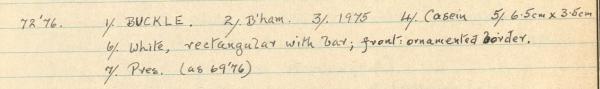 72'76. 1/ BUCKLE. 2/ B'ham. 3/ 1975 4/ Casein 5/ 6.5cm x 3.5cm
6/ White, rectangular with bar; front: ornamented border.
7/ Pres. (as 69'76)